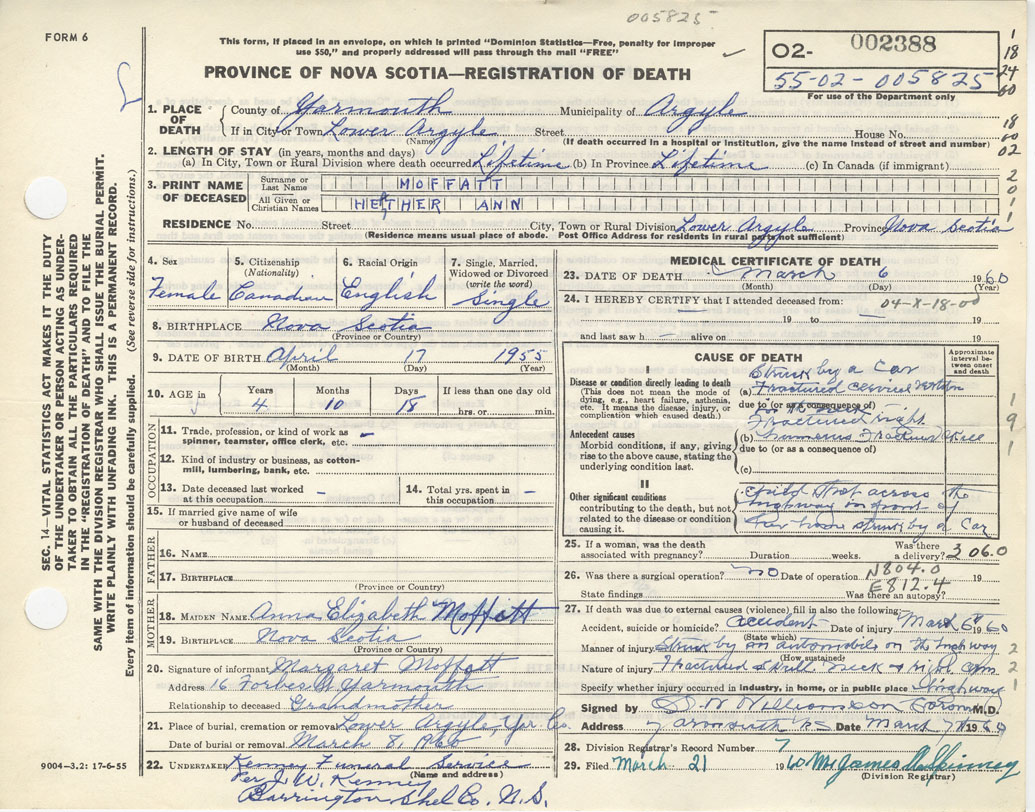 005825
FORM 6
This form, if placed in an envelope, on which is printed "Dominion Statistics—Free, penalty for improper
use $50," and properly addressed will pass through the mail "FREE"
PROVINCE OF NOVA SCOTIA—REGISTRATION OF DEATH
O2- 002388
55-02-005825
For use of the Department only
1
18
24
60
1. PLACE OF DEATH County of Yarmouth Municipality of Argyle
If in City or Town Lower Argyle Street House No.
(Name) (If death occurred in a hospital or institution, give the name instead of street and number)
18
60
02
2. LENGTH OF STAY (in years, months and days)
(a) In City, Town or Rural Division where death occurred Lifetime (b) In Province Lifetime (c) In Canada (if immigrant)
3. PRINT NAME OF DECEASED Surname or Last Name MOFFATT
All Given or Christian Names HEATHER ANN
2
0
1
1
RESIDENCE No. Street City, Town or Rural Division Lower Argyle Province Nova Scotia
(Residence means usual place of abode. Post Office Address for residents in rural parts not sufficient)
SEC. 14—VITAL STATISTICS ACT MAKES IT THE DUTY
OF THE UNDERTAKER OR PERSON ACTING AS UNDER-
TAKER TO OBTAIN ALL THE PARTICULARS REQUIRED
IN THE "REGISTRATION OF DEATH" AND TO FILE THE
SAME WITH THE DIVISION REGISTRAR WHO SHALL ISSUE THE BURIAL PERMIT.
WRITE PLAINLY WITH UNFADING INK. THIS IS A PERMANENT RECORD.
Every item of information should be carefully supplied. (See reverse side for instructions.)
4. Sex
Female
5. Citizenship
(Nationality)
Canadian
6. Racial Origin
English
7. Single, Married,
Widowed or Divorced
(write the word)
Single
8. BIRTHPLACE Nova Scotia
(Province or Country)
9. DATE OF BIRTH April 17 1955
(Month) (Day) (Year)
10. AGE in Years Months Days If less than one day old
4 10 18 hrs. or min.
OCCUPATION
11. Trade, profession, or kind of work as
spinner, teamster, office clerk, etc. –
12. Kind of industry or business, as cotton-
mill, lumbering, bank, etc. –
13. Date deceased last worked
at this occupation –
14. Total yrs. spent in
this occupation –
15. If married give name of wife
or husband of deceased
FATHER
16. NAME
17. BIRTHPLACE
(Province or Country)
MOTHER
18. MAIDEN NAME Anna Elizabeth Moffatt
19. BIRTHPLACE Nova Scotia
(Province or Country)
20. Signature of informant Margaret Moffatt
Address 16 Forbes St Yarmouth
Relationship to deceased Grandmother
21. Place of burial, cremation or removal Lower Argyle, Yar. Co.
Date of burial or removal March 8, 1960
22. UNDERTAKER Kenney Funeral Service
(Name and address)
Per J. W. Kenney
Barrington Shel Co. N.S.
9004-3.2: 17-6-55
MEDICAL CERTIFICATE OF DEATH
23. DATE OF DEATH March 6 1960
(Month) (Day) (Year)
24. I HEREBY CERTIFY that I attended deceased from: 04-X-18-00
19 to 19
and last saw h alive on 19
CAUSE OF DEATH
Approximate
interval be-
tween onset
and death
I
Disease or condition directly leading to death
(This does not mean the mode of
dying, e.g., heart failure, asthenia,
etc. It means the disease, injury, or
complication which caused death.)
Struck by a Car
(a) Fractured cervical
due to (or as a consequence of)
Fractured right
Antecedent causes
Morbid conditions, if any, giving
rise to the above cause, stating the
underlying condition last.
(b) humerus Fracture
due to (or as a consequence of)
(c)
1
9
1
II
Other significant conditions
contributing to the death, but not
related to the disease or condition
causing it.
across the
highway in front of
home struck by a Car
25. If a woman, was the death
associated with pregnancy? Duration weeks. Was there
a delivery? 306.0
26. Was there a surgical operation? no Date of operation N804.0 19
State findings E812.4 Was there an autopsy?
27. If death was due to external causes (violence) fill in also the following:
Accident, suicide or homicide? accident Date of injury March 6 1960
(State which)
Manner of injury Struck by an automobile on the highway 2
(How sustained)
Nature of injury Fractured skull neck + right arm 2
Specify whether injury occurred in industry, in home, or in public place highway 2
Signed by Williamson Coroner M.D.
Address Yarmouth NS Date March 7 1960
28. Division Registrar's Record Number 7
29. Filed March 21 1960
(Division Registrar)